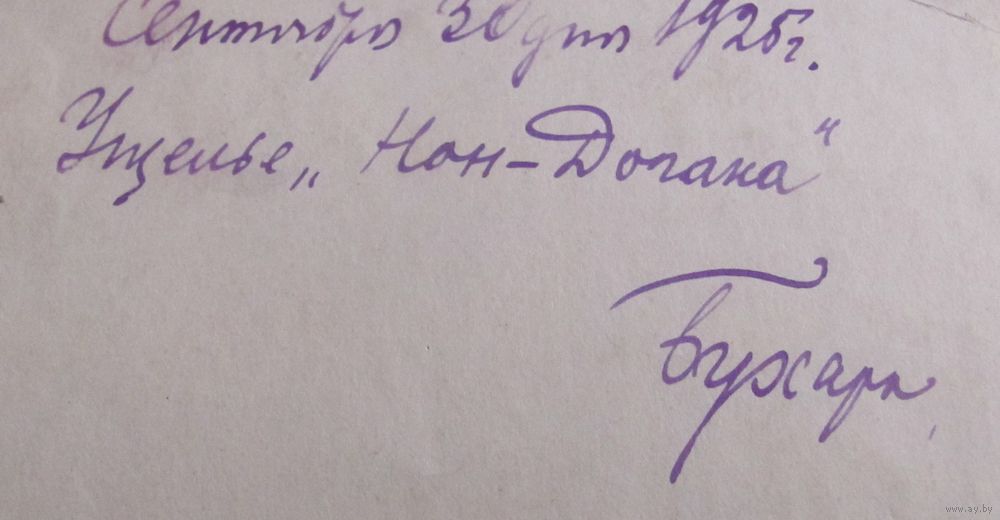 Сентября 30 дня 1925 г.
Ущелье „Нон-Догана“
Бухара
www.ay.by